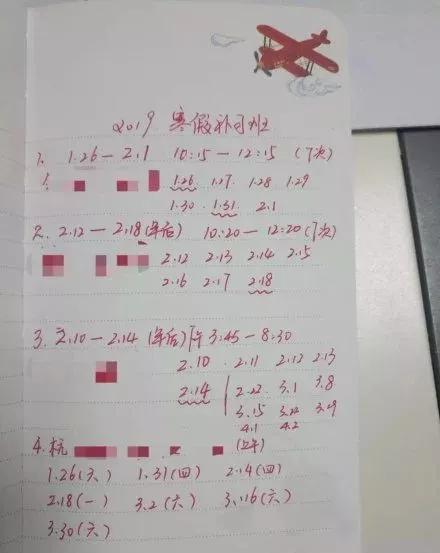 2019 寒假补习班
1. 1.26 — 2.1 10:15 — 12:15 (7次)
1.26 1.27 1.28 1.29
1.30 1.31 2.1
2. 2.12 — 2.18 (年后) 10:20 — 12:20 (7次)
2.12 2.13 2.14 2.15
2.16 2.17 2.18
3. 2.10 — 2.14 (年后) 下午 3:45 — 8:30
2.10 2.11 2.12 2.13
2.14 2.22 3.1 3.8
3.15 3.22 3.29
4.1 4.2
4. 杭 (上午)
1.26(六) 1.31(四) 2.14(四)
2.18(一) 3.2(六) 3.16(六)
3.30(六)